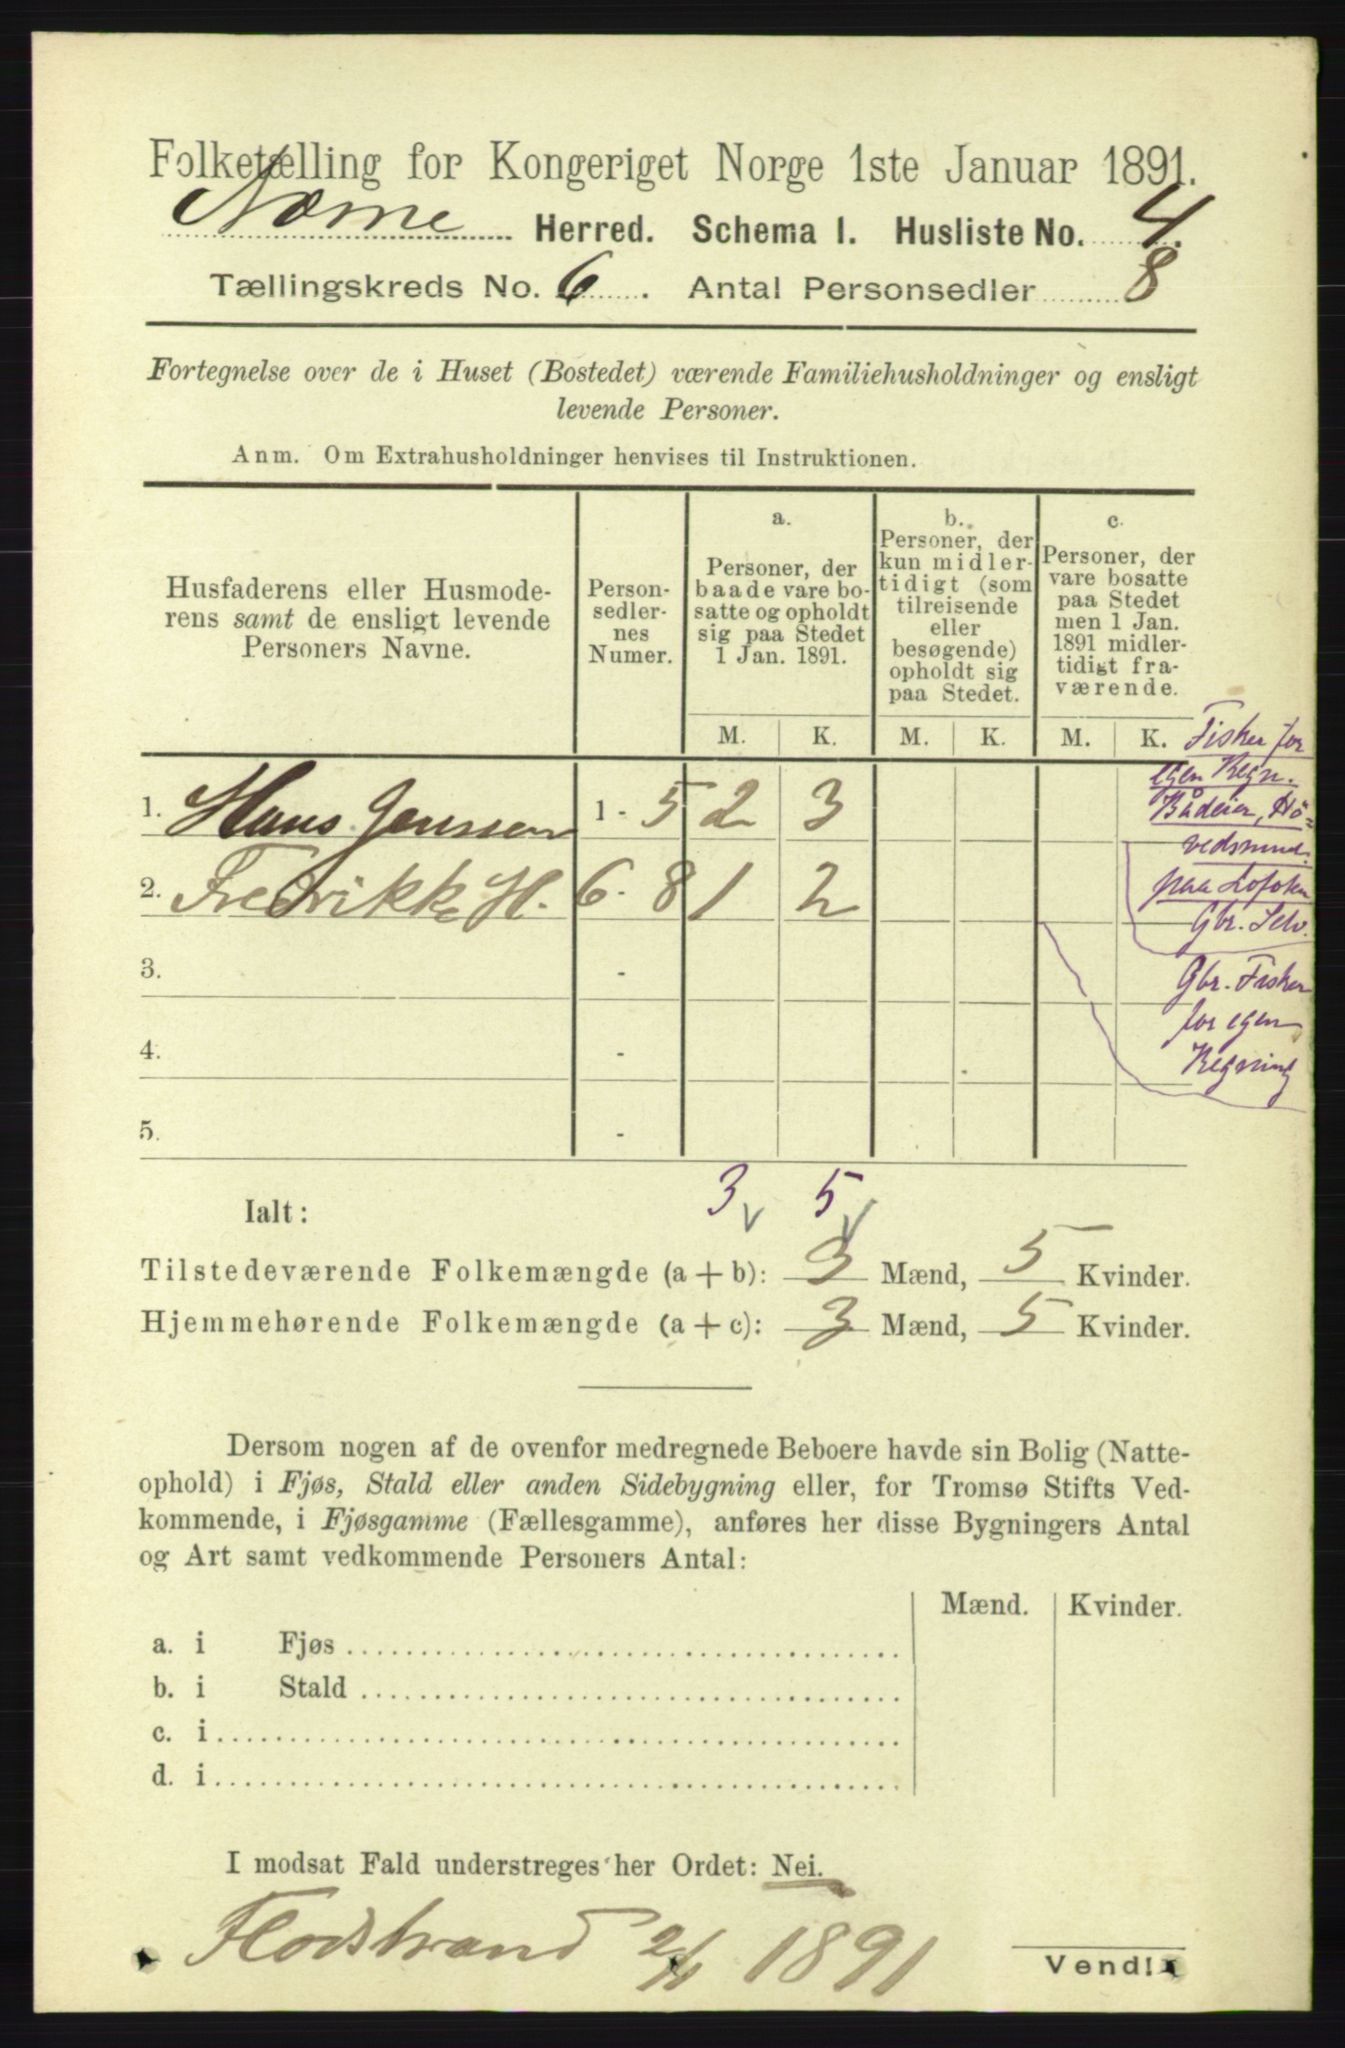 Folketælling for Kongeriget Norge 1ste Januar 1891.
Næsne Herred. Schema I. Husliste No. 4.
Tællingskreds No. 6. Antal Personsedler 8
Fortegnelse over de i Huset (Bostedet) værende Familiehusholdninger og ensligt
levende Personer.
Anm. Om Extrahusholdninger henvises til Instruktionen.
Husfaderens eller Husmode-
rens samt de ensligt levende
Personers Navne.
Person-
sedler-
nes
Numer.
a.
Personer, der
baade vare bo-
satte og opholdt
sig paa Stedet
1 Jan. 1891.
b.
Personer, der
kun midler-
tidigt (som
tilreisende
eller
besøgende)
opholdt sig
paa Stedet.
c.
Personer, der
vare bosatte
paa Stedet
men 1 Jan.
1891 midler-
tidigt fra-
værende.
M. K. M. K. M. K.
Fisker for
egen Regn.
Bådeier, Hö=
vedsmnd.
paa Lofoten
Gbr. Selv.
Gbr. Fisker
for egen
Regning
1. Hans Jenssen 1 - 5 2 3
2. Fredrikke H. 6 - 8 1 2
3. -
4. -
5. -
3 5
Ialt:
Tilstedeværende Folkemængde (a + b): 3 Mænd, 5 Kvinder.
Hjemmehørende Folkemængde (a + c): 3 Mænd, 5 Kvinder.
Dersom nogen af de ovenfor medregnede Beboere havde sin Bolig (Natte-
ophold) i Fjøs, Stald eller anden Sidebygning eller, for Tromsø Stifts Ved-
kommende, i Fjøsgamme (Fællesgamme), anføres her disse Bygningers Antal
og Art samt vedkommende Personers Antal:
Mænd. Kvinder.
a. i Fjøs
b. i Stald
c. i
d. i
I modsat Fald understreges her Ordet: Nei.
Flostrand 2/1 1891
Vend!